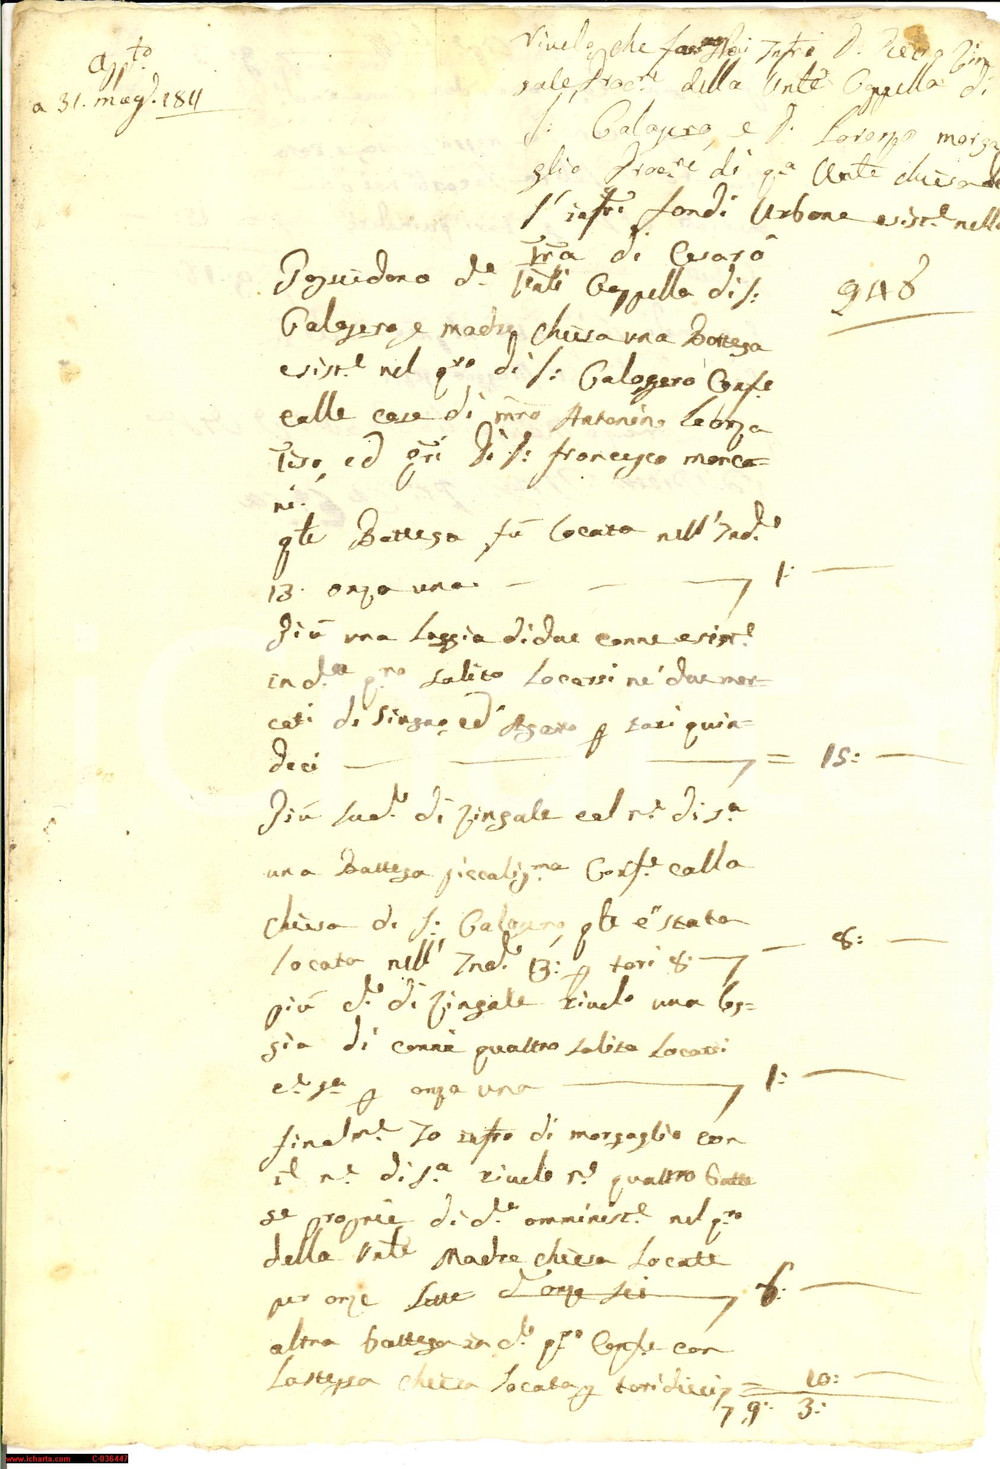 app.to
a 31. magg.o 1811
Rivelo che fanno Noi Infri D. Zin
gale Proc.re della Vnle Cappella di
S: Calogero, e D. Lorenzo morga
glio Proc.re di q.a Vnle chiesa de
l'infri fondi Urbane esist.e nella
Trra di Cesarò
948
Possiedono d.a Vnle Cappella di S:
Calogero, e madre chiesa una Bottega
esist.e nel q.ro di S: Calogero Conf.e
colle case di mro Antonino
ed di S: Francesco morca=
ni.
qle Bottega fù locata nell'Ind.e
13. onza una. — — — 1: —
Più una Loggia di due canne esist.e
in d.o q.ro solito locarsi ne' due mer=
cati di Giugno, ed Agosto p tarì quin=
deci — — — = 15: —
Più sud.o di Zingale col n.e di s.a
una Bottega piccolis.ma Conf.e colla
chiesa di S: Calogero, qle è stata
locata nell'Ind.e 13: p tarì 8. — — 8: —
più d.o di Zingale rivelo una log=
gia di canne quattro solita locarsi
c.e s.a p onza una — 1: —
finalm.e Io infro di morgaglio con
il n.e di s.a rivelo n.o quattro botte
ge proprie di d.a amminist.e nel q.ro
della Vnle Madre chiesa locate
per onze sette d'onze sei — 6: —
altra bottega in d.o q.ro Conf.e con
la stessa chiesa locata p tarì dieci = 10: —
9: 3:
www.icharta.com C-036447